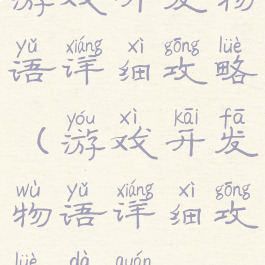 游戏开发物
yǔ xiáng xì gōng lüè
语详细攻略
yóu xì kāi fā
(游戏开发
wù yǔ xiáng xì gōng
物语详细攻
lüè dà quán